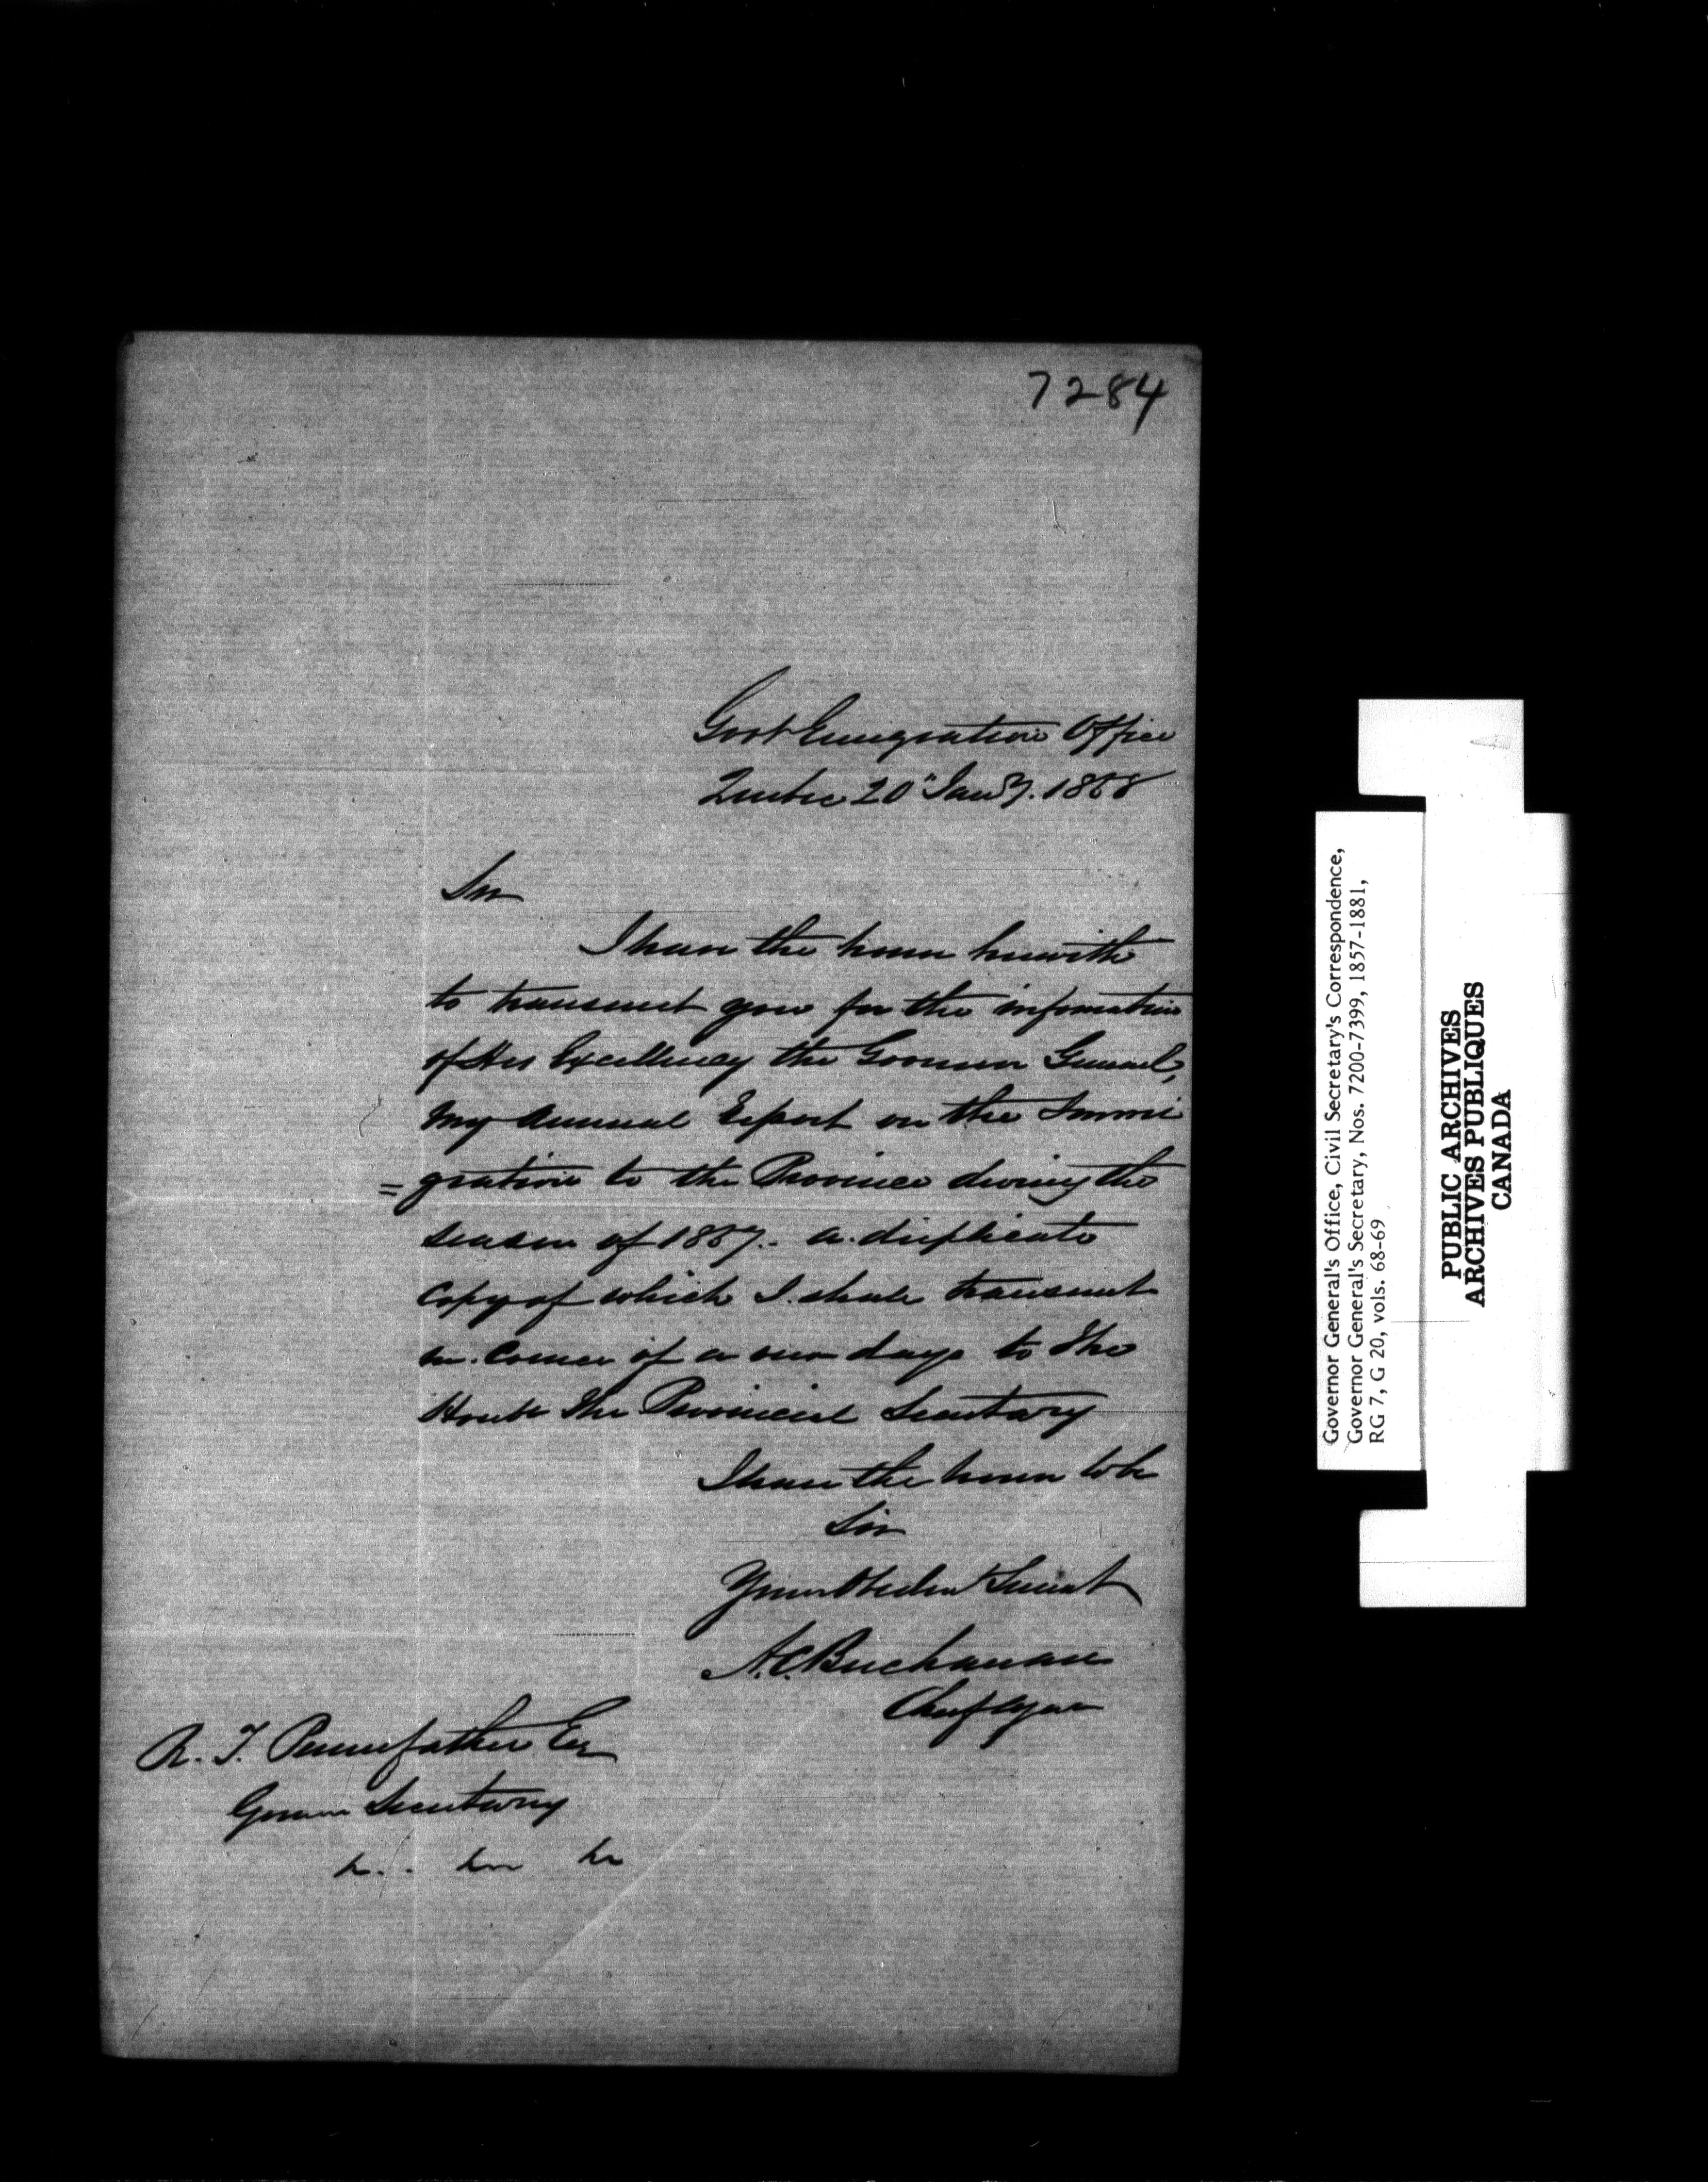 7284
Govt Emigration Office
Quebec 20" Jany. 1858
Sir
I have the honor herewith
to transmit you for the information
of His Excellency the Governor General,
my Annual Report on the Immi
=gration to the Province during the
season of 1857. a duplicate
copy of which I shall transmit
in course of a few days to the
Honble the Provincial Secretary
I have the honor to be
Sir
Your Obedient Servant
A.C. Buchanan
Chief Agent
R. T. Pennefather Esq
Govern Secretary
Governor General's Office, Civil Secretary's Correspondence,
Governor General's Secretary, Nos. 7200-7399, 1857-1881,
RG 7, G 20, vols. 68-69
PUBLIC ARCHIVES
ARCHIVES PUBLIQUES
CANADA